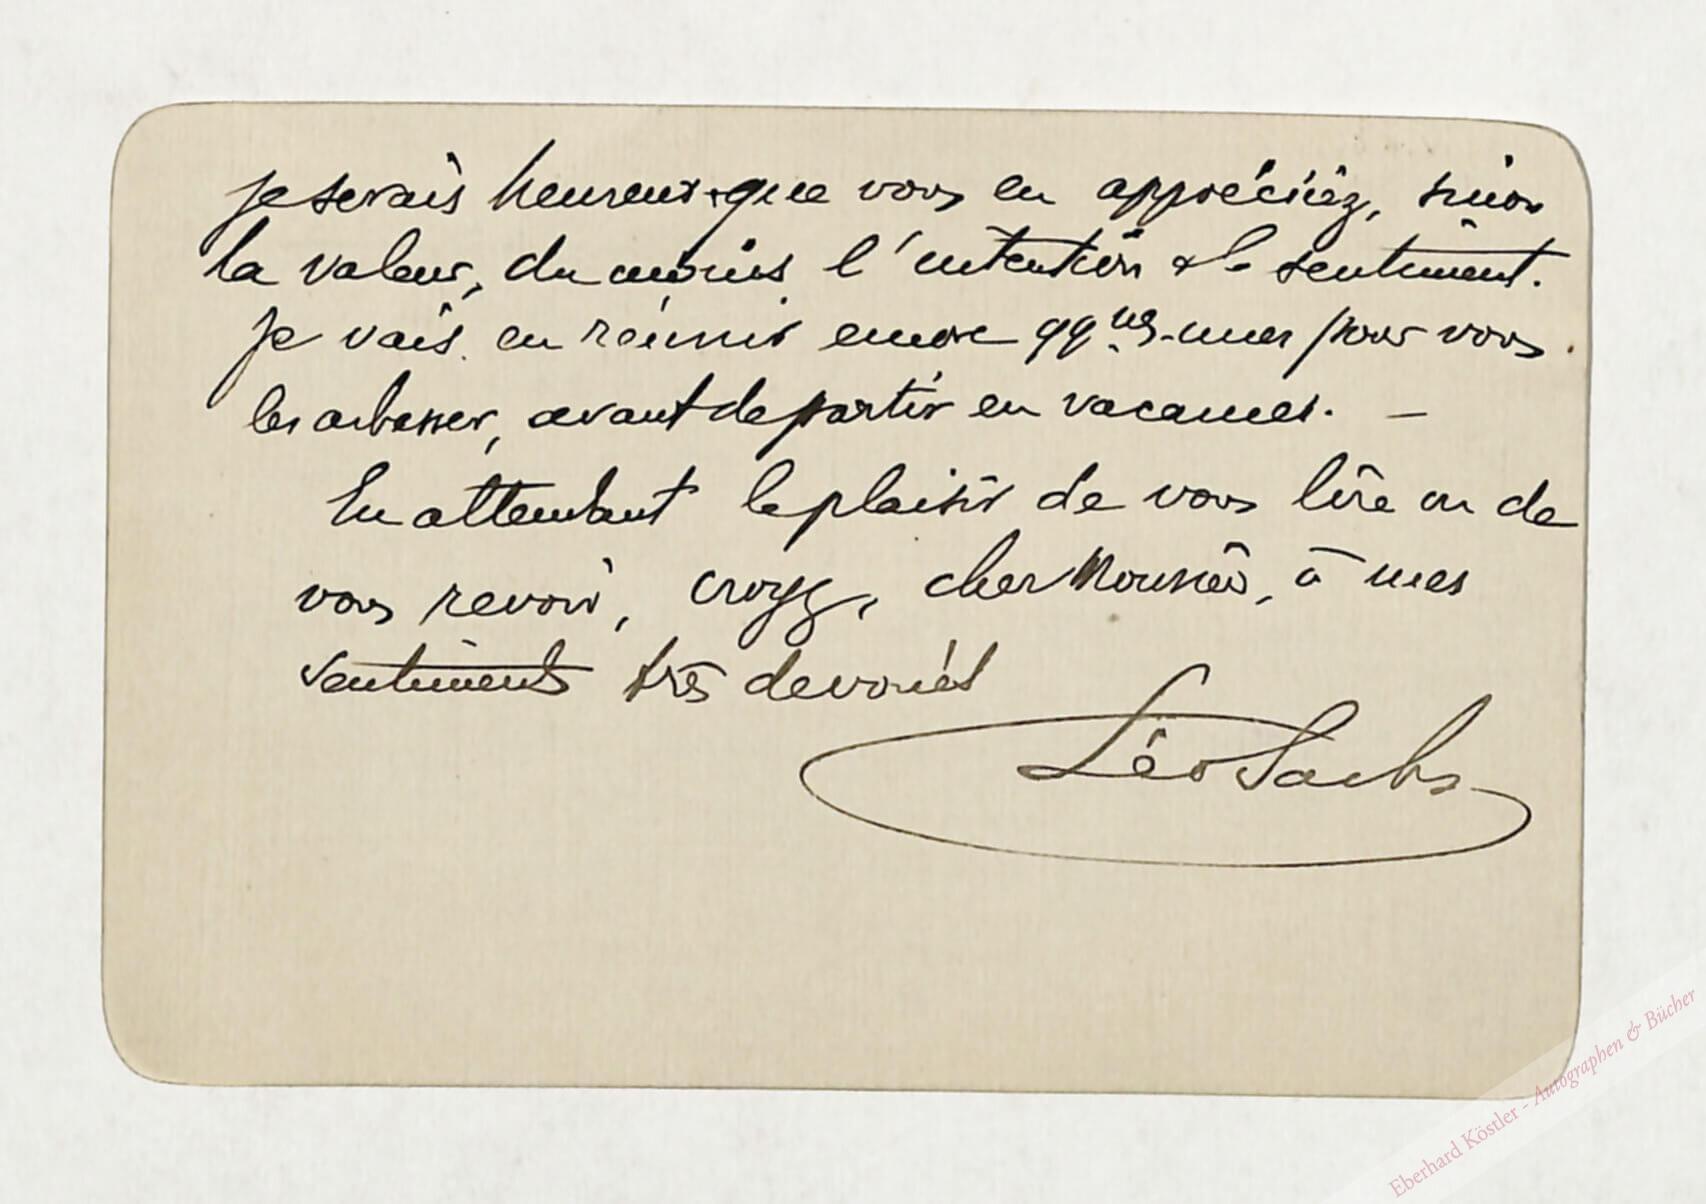 je serais heureux que vous en appréciiez, sinon
la valeur, du moins l'intention & le sentiment.
Je vais en réunir encore qq.ues-unes pour vous
les adresser, avant de partir en vacances. —
En attendant le plaisir de vous lire ou de
vous revoir, croyez, cher Monsieur, à mes
sentiments très dévoués
Léo Sachs
Eberhard Köstler - Autographen & Bücher